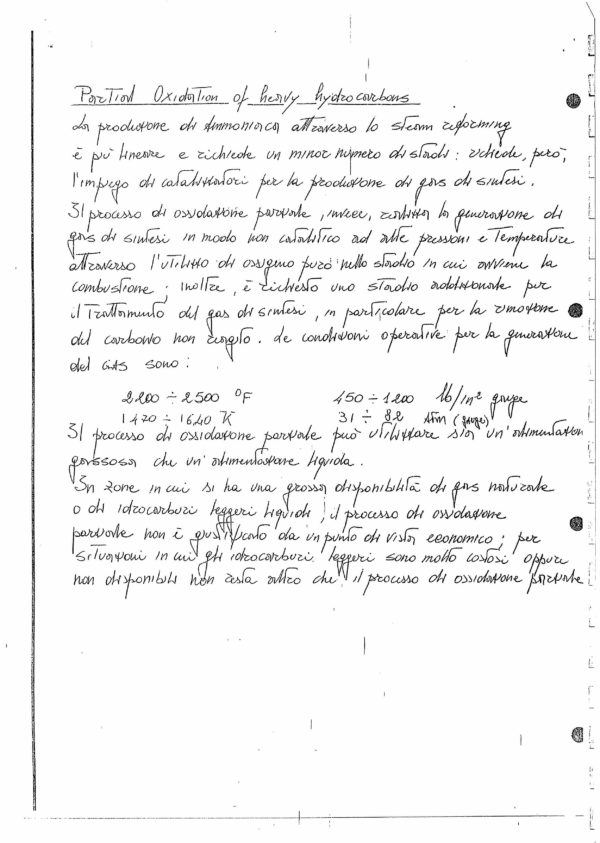 Partial Oxidation of heavy hydrocarbons
La produzione di Ammoniaca attraverso lo steam reforming
è più lineare e richiede un minor numero di stadi: richiede, però,
l'impiego di catalizzatori per la produzione di gas di sintesi.
Il processo di ossidazione parziale, invece, realizza la generazione di
gas di sintesi in modo non catalitico ad alte pressioni e Temperature
attraverso l'utilizzo di ossigeno puro nello stadio in cui avviene la
combustione; inoltre, è richiesto uno stadio addizionale per
il Trattamento del gas di sintesi, in particolare per la rimozione
del carbonio non reagito. Le condizioni operative per la generazione
del GAS sono:
2200 ÷ 2500 °F 450 ÷ 1200 lb/in² gauge
1470 ÷ 1640 K 31 ÷ 82 Atm (gauge)
Il processo di ossidazione parziale può utilizzare sia un'alimentazione
gassosa che un'alimentazione liquida.
In zone in cui si ha una grossa disponibilità di gas naturale
o di idrocarburi leggeri liquidi, il processo di ossidazione
parziale non è giustificato da un punto di vista economico; per
situazioni in cui gli idrocarburi leggeri sono molto costosi oppure
non disponibili non resta altro che il processo di ossidazione parziale